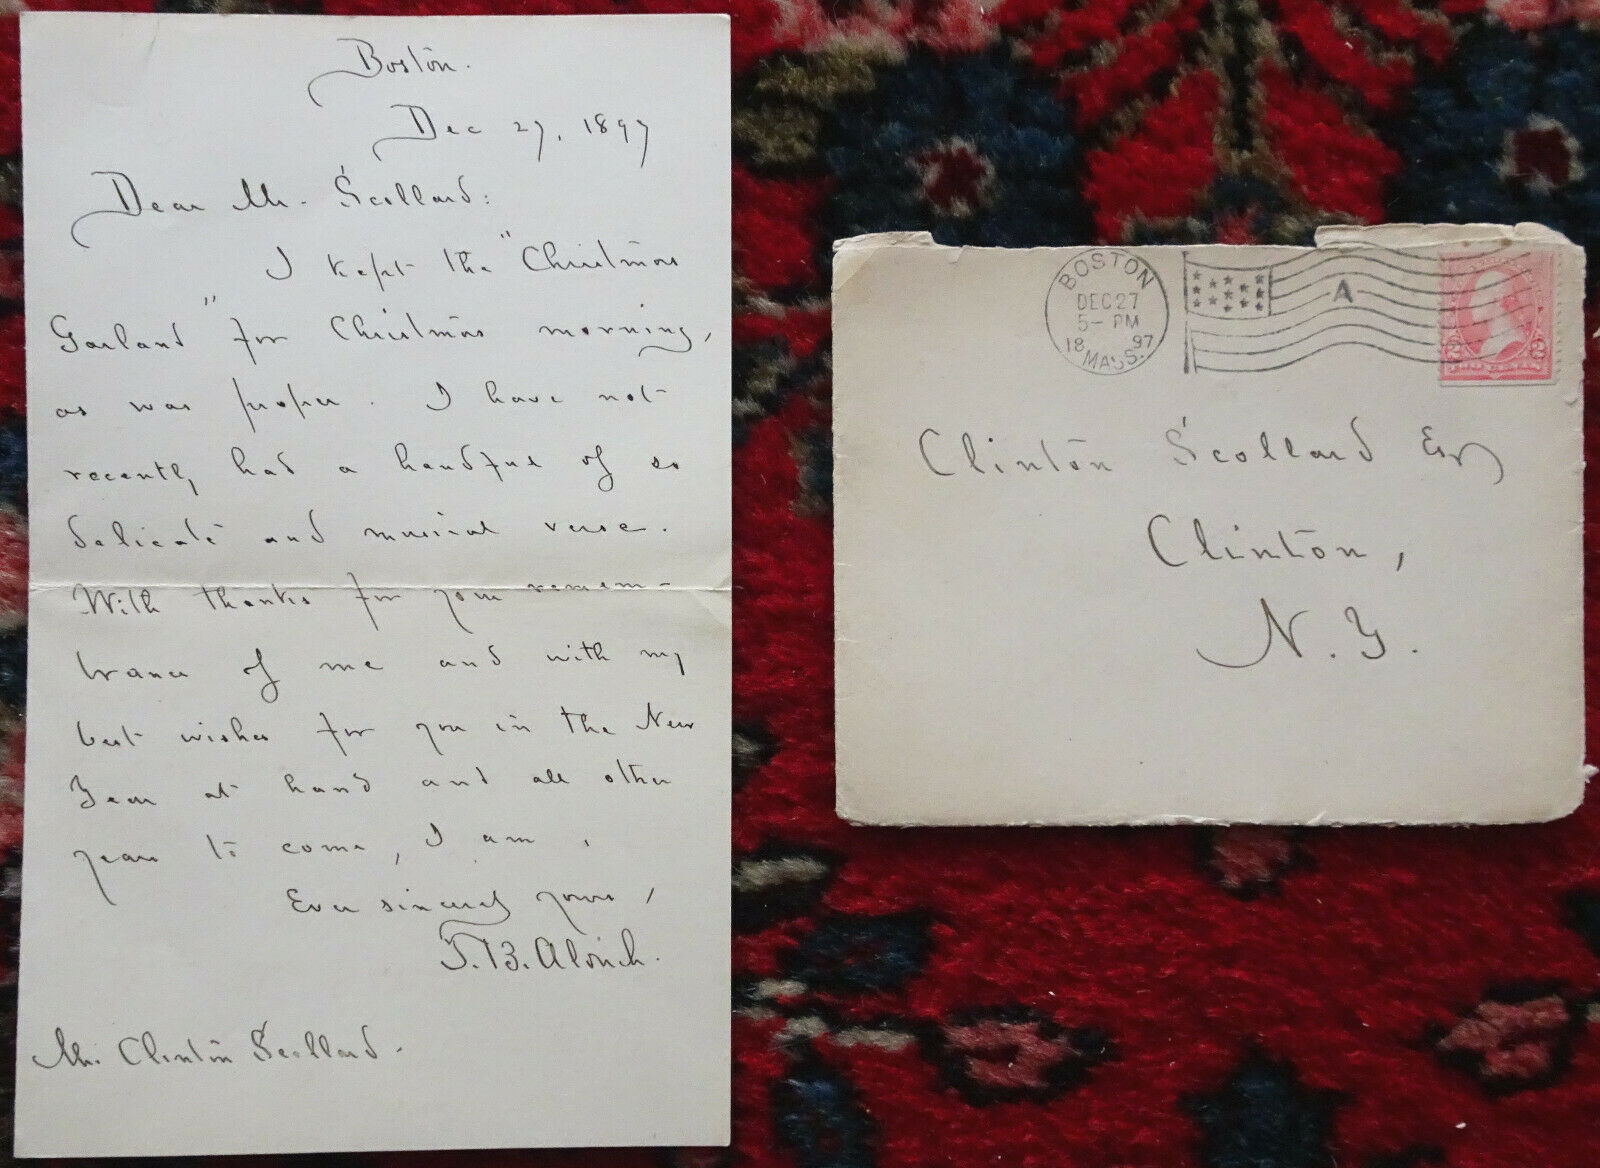 Boston.
Dec 27, 1897
Dear Mr. Scollard:
I kept the "Christmas
Garland" for Christmas morning,
as was proper. I have not
recently had a handful of so
delicate and musical verse.
With thanks for your remem-
brance of me and with my
best wishes for you in the New
Year at hand and all other
years to come, I am,
Ever sincerely yours,
T. B. Aldrich.
Mr. Clinton Scollard.
BOSTON
DEC 27
5- PM
18 97
MASS.
A
2 2
Clinton Scollard Esq
Clinton,
N. Y.